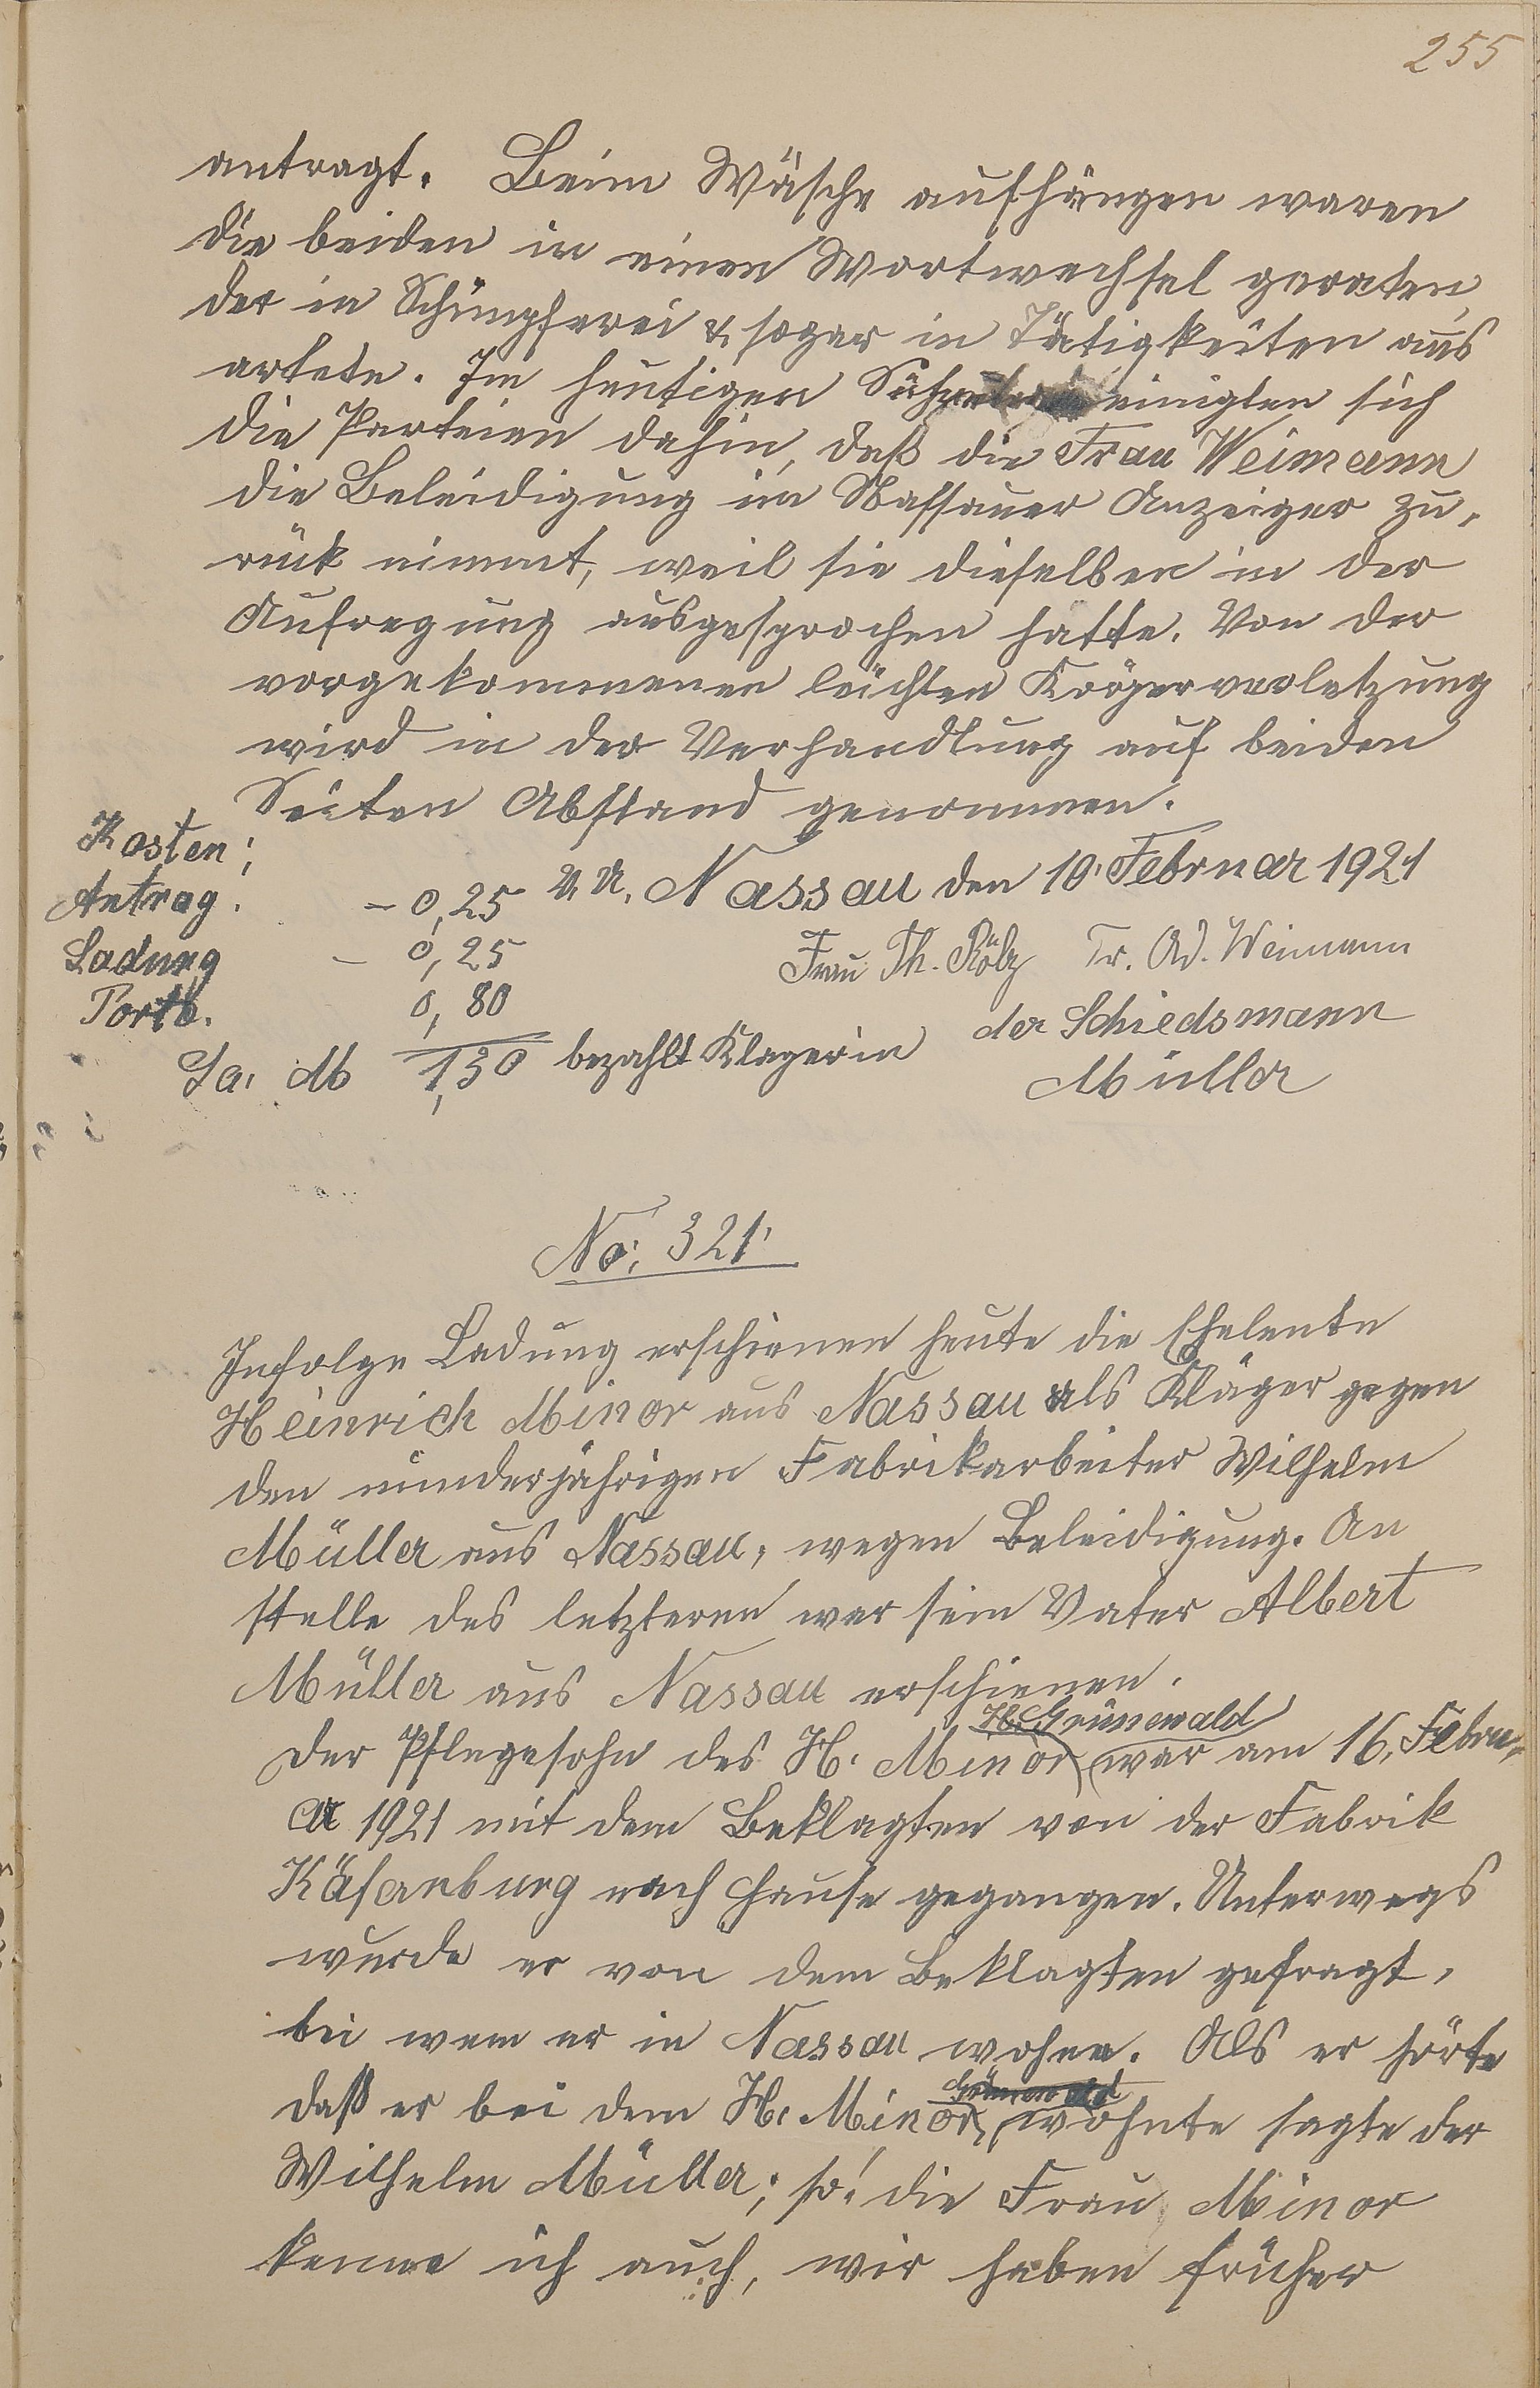 255
antragt. Beim Wäsche aufhängen waren
die beiden in einen Wortwechsel geraten,
der in Schimpferei & sogar in Tätigkeiten aus
artete. Im heutigen einigten sich
die Parteien dahin, daß die Frau Weimann
die Beleidigung im Nassauer Anzeiger zu-
rück nimmt, weil sie dieselben in der
Aufregung ausgesprochen hätte. Von der
vorgekommenen leichten Körperverletzung
wird in der Verhandlung auf beiden
Seiten Abstand genommen.
Kosten:
V. u. Nassau den 10. Februar 1921
Antrag. - 0,25
Ladung - 0,25
Frau Th. Fr. Ad. Weimann
Porto. 0,80
der Schiedsmann
Sa. M 1,30 bezahlt Klagerin
Müller
No. 321.
Infolge Ladung erschienen heute die Eheleute
Heinrich Minor aus Nassau als Kläger gegen
den minderjährigen Fabrikarbeiter Wilhelm
Müller aus Nassau, wegen Beleidigung. An
stelle des letzteren war sein Vater Albert
Müller aus Nassau erschienen.
H. Grünewald
Der Pflegesohn des H. Minor war am 16. Febru-
ar 1921 mit dem Beklagten von der Fabrik
Käfernburg nach Hause gegangen. Unterwegs
wurde er von dem Beklagten gefragt,
bei wem er in Nassau wohne. Als er hörte
Grünewald
daß er bei dem H. Minor, wohnte sagte der
Wilhelm Müller; so! die Frau Minor
kenne ich auch, wir haben früher